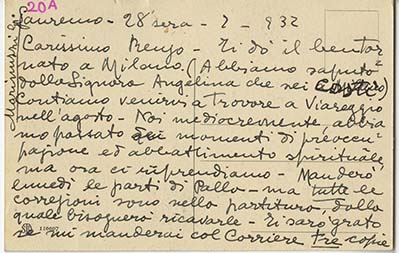 20A
Sanremo - 28 sera - 7 - 932
Carissimo Renzo - Ti dò il bentor=
nato a Milano. (Abbiamo saputo
dalla Signora Angelina che sei
Contiamo venirvi a trovare a Viareggio
nell'agosto - Noi mediocremente, abbia
mo passato dei momenti di preoccu=
pazione ed abbattimento spirituale,
ma ora ci riprendiamo - Manderò
lunedì le parti di Pallo - ma tutte le
correzioni sono nella partitura, dalla
quale bisognerà ricavarle - Ti sarò grato
se mi manderai col Corriere tre copie